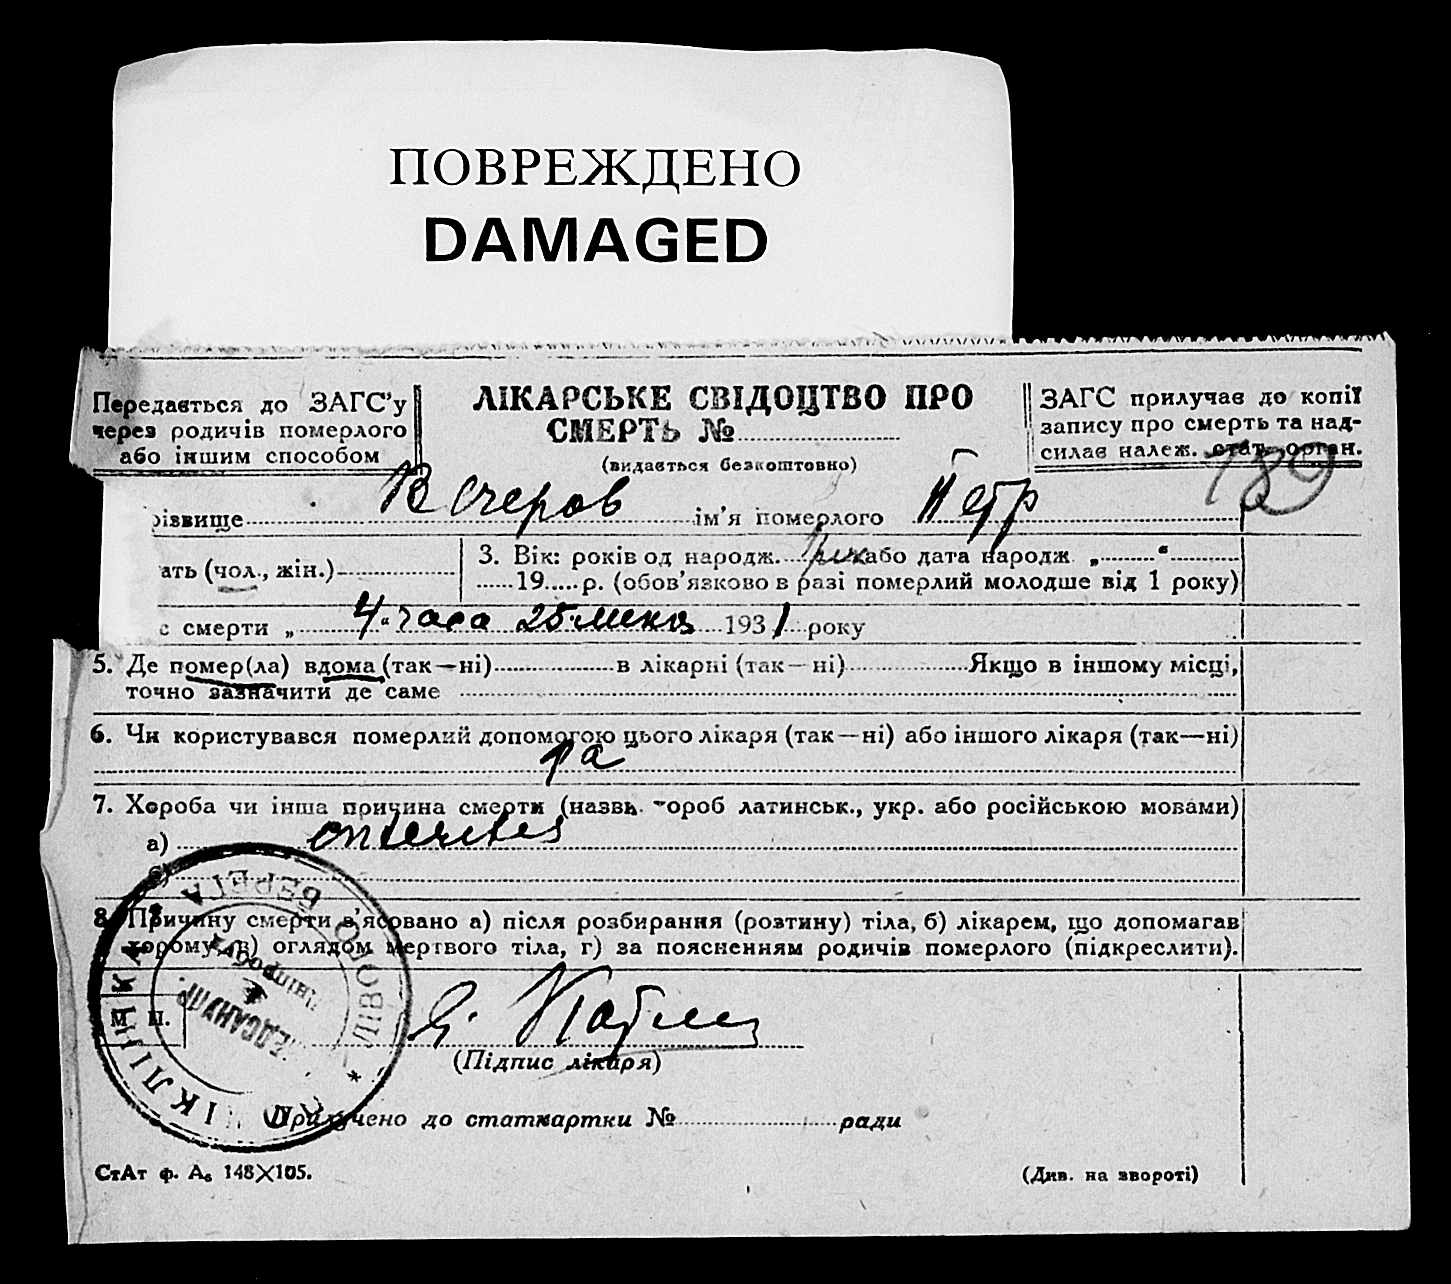 ПОВРЕЖДЕНО
DAMAGED
Передається до ЗАГС'у
через родичів померлого
або іншим способом
ЛІКАРСЬКЕ СВІДОЦТВО ПРО
СМЕРТЬ №
(видається безкоштовно)
ЗАГС прилучає до копії
запису про смерть та над-
силає належ. стат. орган.
189
різвище Вечеров ім'я померлого Петр
ать (чол., жін.)
3. Вік: років од народж. або дата народж. „ “
19 р. (обов'язково в разі померлий молодше від 1 року)
с смерти „ 4 часа 25 1931 року
5. Де помер(ла) вдома (так—ні) в лікарні (так—ні) Якщо в іншому місці,
точно зазначити де саме
6. Чи користувався померлий допомогою цього лікаря (так—ні) або іншого лікаря (так—ні)
да
7. Хороба чи інша причина смерти (назв. хороб латинськ., укр. або російською мовами)
а) enterites
8. Причину смерти з'ясовано а) після розбирання (розтину) тіла, б) лікарем, що допомагав
хорому, в) оглядом мертвого тіла, г) за поясненням родичів померлого (підкреслити).
М П.
(Підпис лікаря)
ПОЛІКЛІНІКА ЛІВОГО БЕРЕГА
Прилучено до статкартки № ради
СтАт ф. А₆ 148×105.
(Див. на звороті)